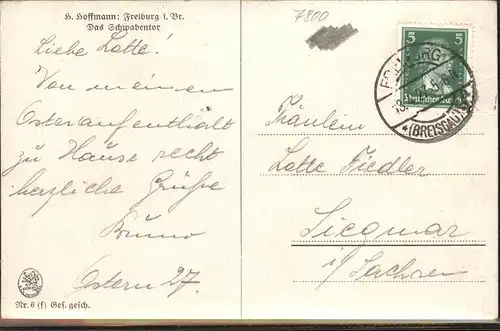 H. Hoffmann: Freiburg i. Br.
Das Schwabentor
Liebe Lotte!
Von meinem
Osteraufenthalt
zu Hause recht
herzliche Grüße
Bruno
Ostern 27.
Nr. 6 (f) Ges. gesch.
7800
5 5
Deutsches Reich
FREIBURG
*(BREISGAU)
Fräulein
Lotte Fiedler
Siegmar
i/Sachsen